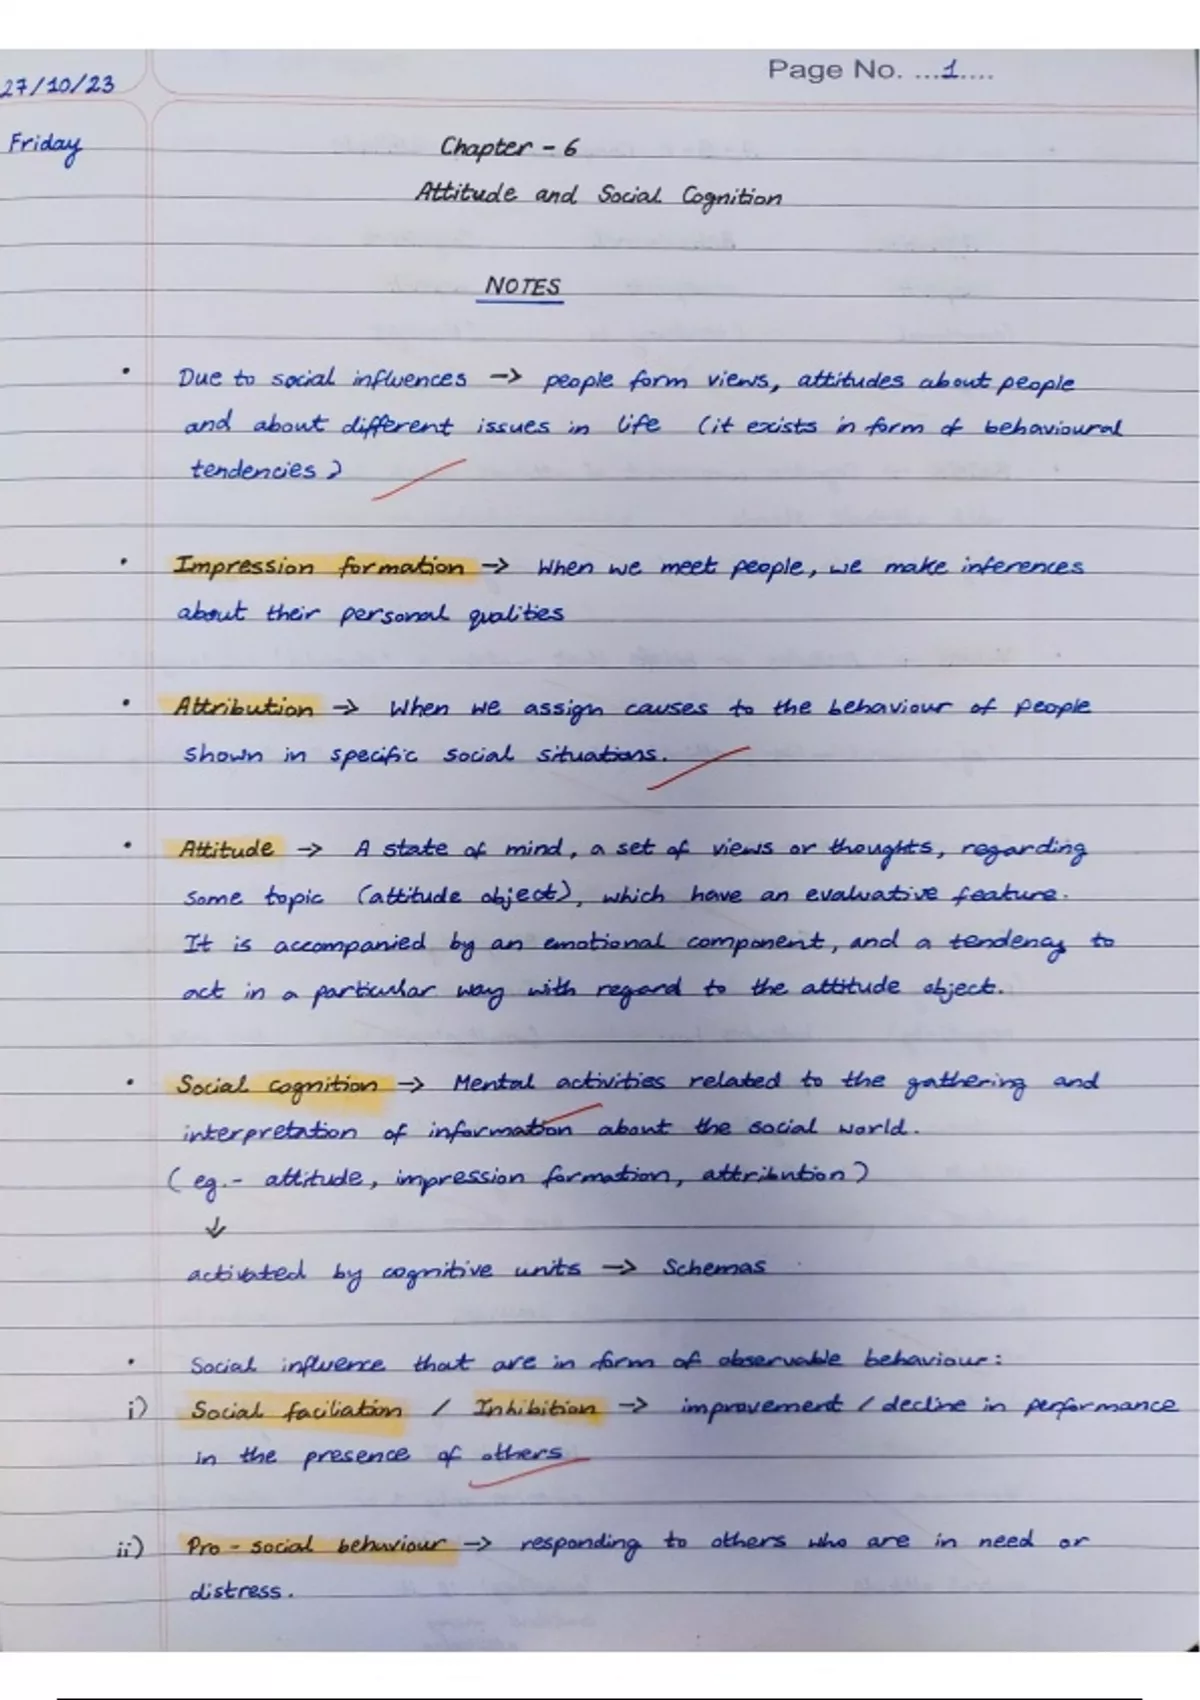 Page No. ...1....
27/10/23
Friday
Chapter - 6
Attitude and Social Cognition
NOTES
• Due to social influences → people form views, attitudes about people
and about different issues in life (it exists in form of behavioural
tendencies)
• Impression formation → When we meet people, we make inferences
about their personal qualities
• Attribution → When we assign causes to the behaviour of people
shown in specific social situations.
• Attitude → A state of mind, a set of views or thoughts, regarding
some topic (attitude object), which have an evaluative feature.
It is accompanied by an emotional component, and a tendency to
act in a particular way with regard to the attitude object.
• Social cognition → Mental activities related to the gathering and
interpretation of information about the social world.
(eg.- attitude, impression formation, attribution)
↓
activated by cognitive units → Schemas
• Social influence that are in form of observable behaviour:
i) Social faciliation / Inhibition → improvement / decline in performance
in the presence of others
ii) Pro - social behaviour → responding to others who are in need or
distress.